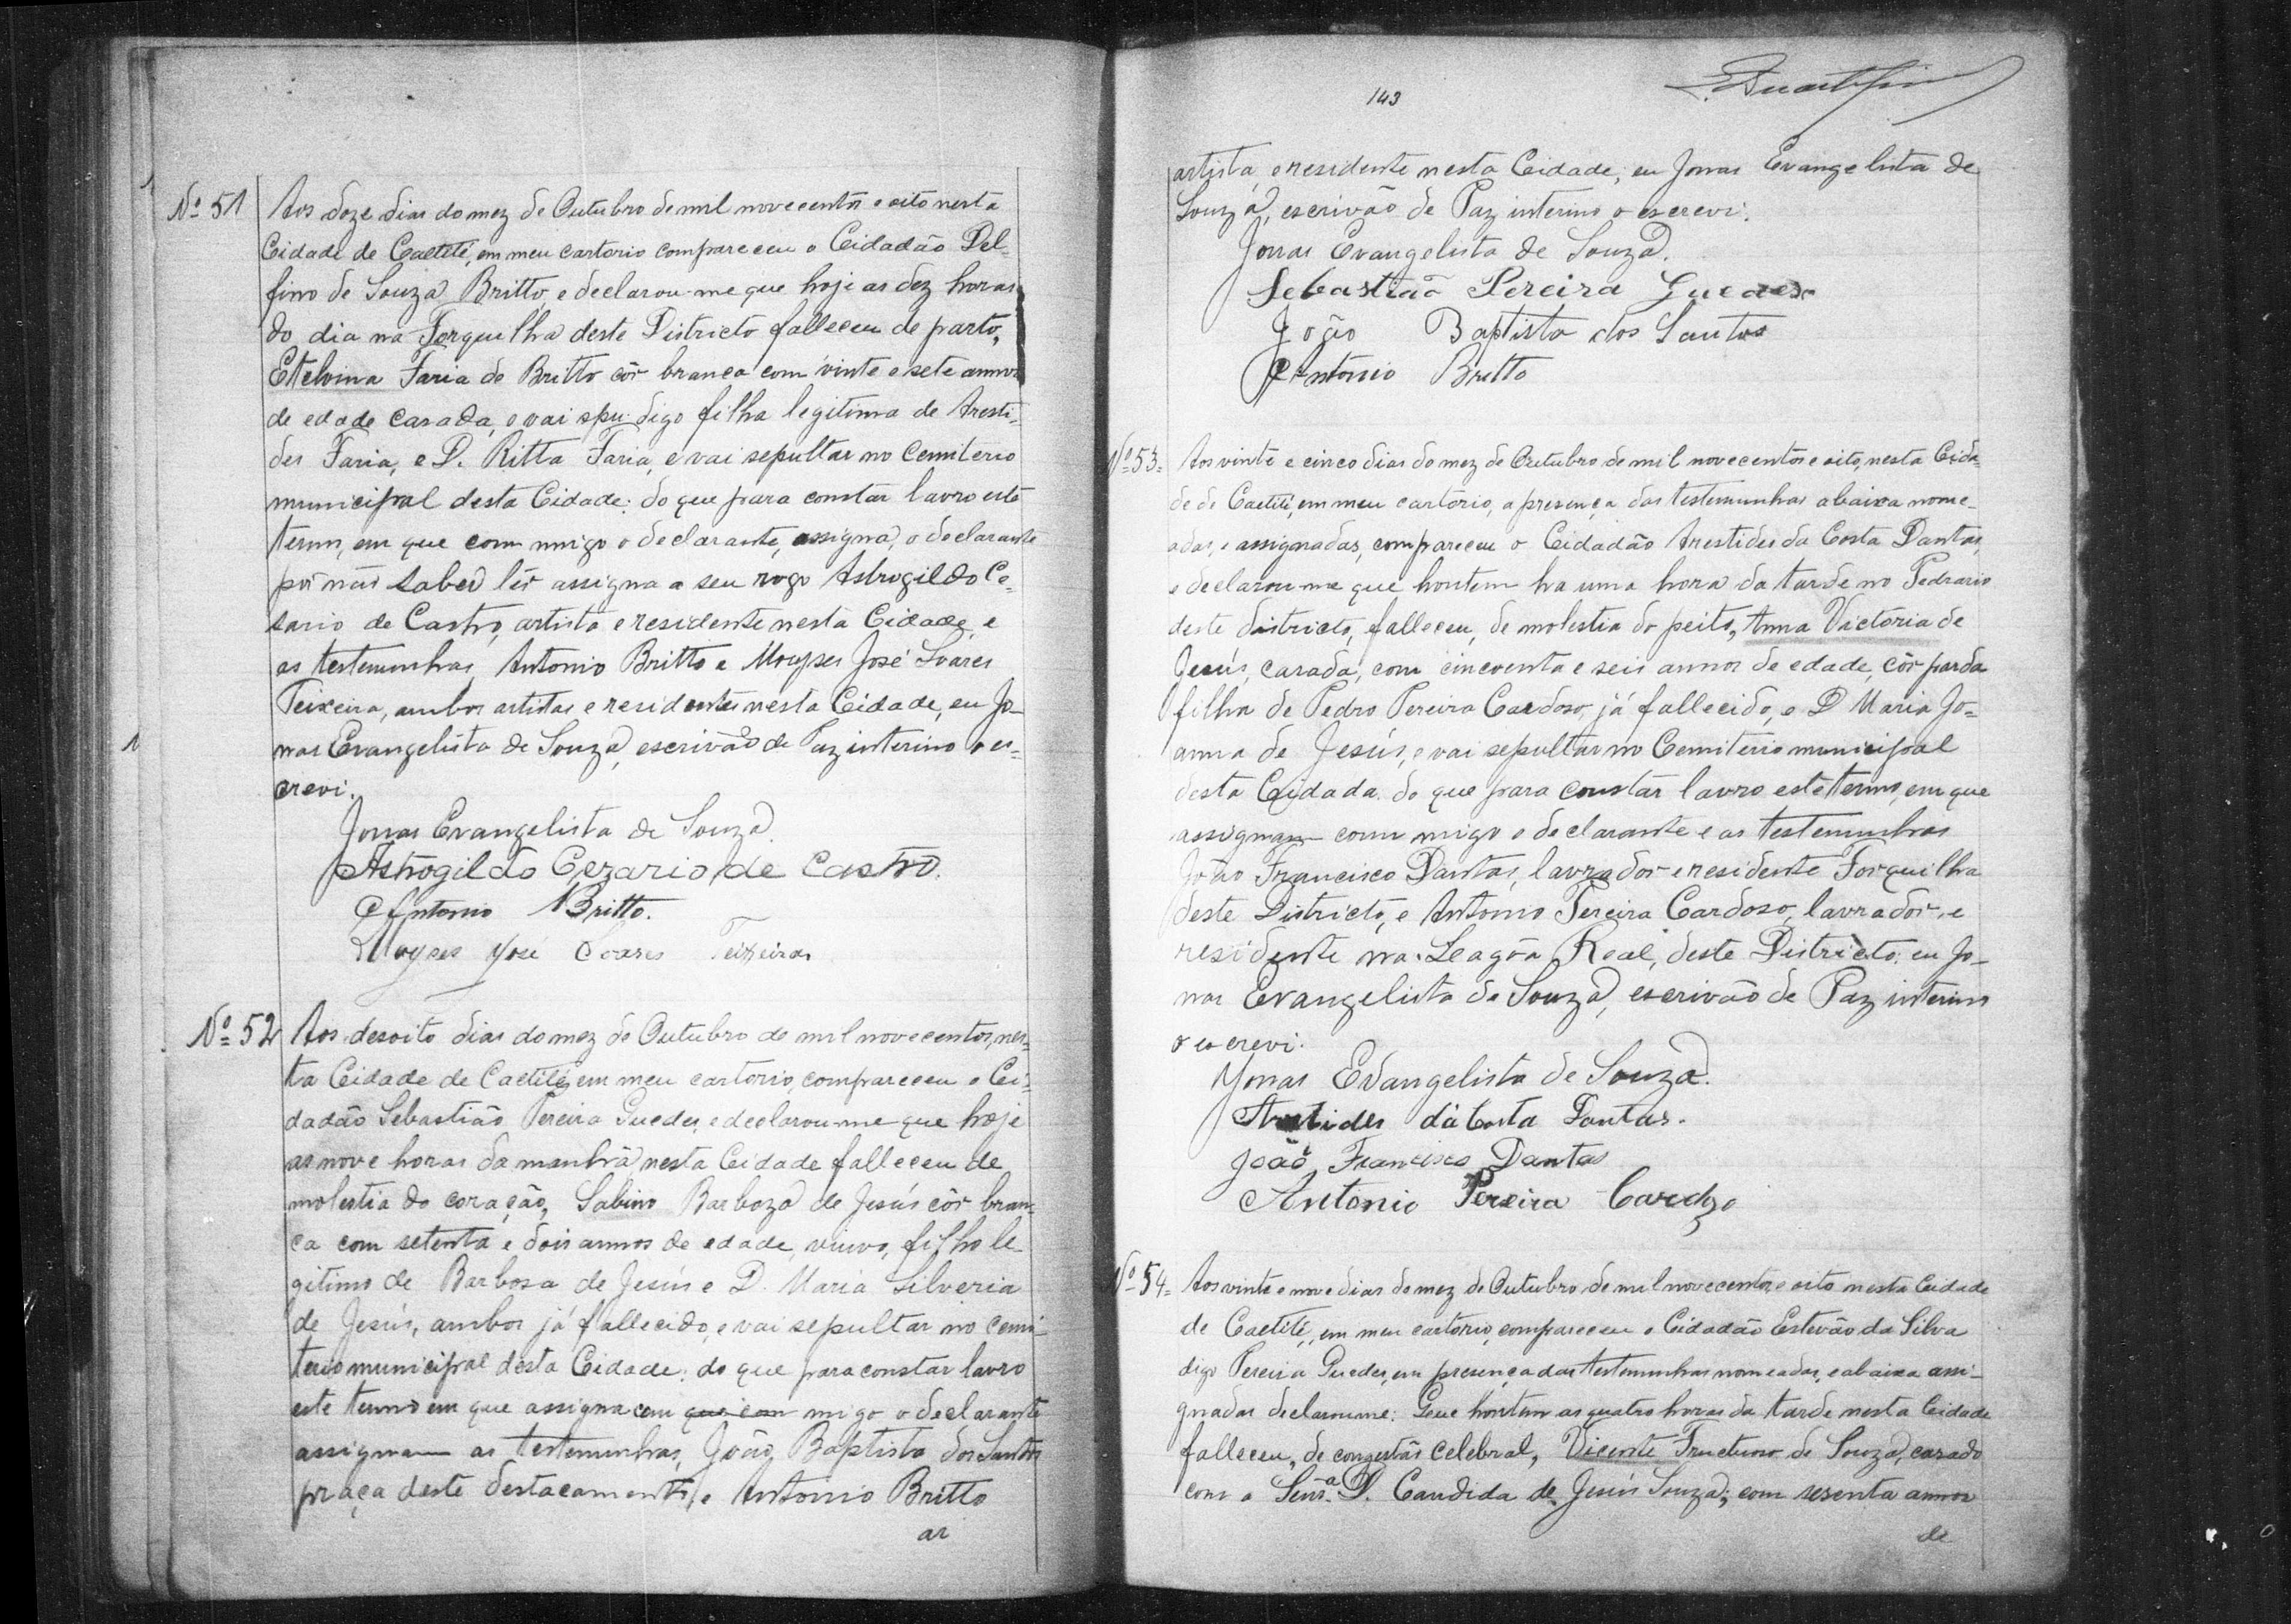 Nº 51 Aos doze dias do mez de Outubro de mil novecentos e oito nesta
Cidade de Caeteté, em meu cartorio compareceu o Cidadão Del-
fino de Souza Britto, e declarou-me que hoje as dez horas
do dia na Forquilha deste Districto falleceu de parto,
Etelvina Faria de Britto côr branca com vinte e sete annos
de edade casada, e vai spu digo filha legitima de Aresti-
des Faria, e D. Ritta Faria, e vai sepultar no Cemiterio
municipal desta Cidade: do que para constar lavro este
termo, em que com migo o declarante, assigna, o declarante
por não saber lêr assigna a seu rogo Astrogildo Ce-
sario de Castro, artista e residente nesta Cidade, e
as testemunhas, Antonio Britto e Moyses José Soares
Teixeira, ambos artistas e residentes nesta Cidade, eu Jo-
nas Evangelista de Souza, escrivão de Paz interino o es-
crevi.
Jonas Evangelista de Souza.
Astrogildo Cezario de Castro.
Antonio Britto.
Moyses José Soares Teixeira
Nº 52 Aos desoito dias do mez de Outubro de mil novecentos, nes-
ta Cidade de Caeteté, em meu cartorio, compareceu o Ci-
dadão Sebastião Pereira Guedes, e declarou-me que hoje
as nove horas da manhã, nesta Cidade falleceu de
molestia do coração, Sabino Barboza de Jesús côr bran-
ca com setenta e dois annos de edade, viuvo, filho le-
gitimo de Barbosa de Jesús e D. Maria Silveria
de Jesús, ambos já fallecido, e vai sepultar no cemi-
terio municipal desta Cidade: do que para constar lavro
este termo em que assigna com que com migo o declarante
assignam as testemunhas, João Baptista dos Santos
praça deste destacamento, e Antonio Britto
ar
143
artista, e residente nesta Cidade; eu Jonas Evangelista de
Souza, escrivão de Paz interino o escrevi.
Jonas Evangelista de Souza.
Sebastião Pereira Guedes
João Baptista dos Santos
Antonio Britto
Nº 53= Aos vinte e cinco dias do mez de Outubro de mil novecentos e oito, nesta Cida-
de de Caeteté, em meu cartorio, a presença das testemunhas abaixa nome-
adas, e assignadas, compareceu o Cidadão Arestides da Costa Dantas,
e declarou-me que hontem ha uma hora da tarde no Pedrario
deste districto, falleceu, de molestia do peito, Anna Victoria de
Jesús, casada, com cincoenta e seis annos de edade, côr parda
filha de Pedro Pereira Cardoso, já fallecido, e D Maria Jo-
anna de Jesús, e vai sepultar no Cemiterio municipal
desta Cidada. do que para constar lavro este termo, em que
assignam com migo o declarante e as testemunhas
João Francisco Dantas, lavrador e residente Forquilha
deste Districto, e Antonio Pereira Cardoso, lavrador, e
residente na Leagôa Real, deste Districto: eu Jo-
nas Evangelista de Souza, escrivão de Paz interino
o escrevi.
Jonas Evangelista de Souza.
Arestides da Costa Dantas.
João Francisco Dantas
Antonio Pereira Cardozo
Nº 54= Aos vinte e nove dias do mez de Outubro de mil novecentos e oito nesta Cidade
de Caeteté, em meu cartorio, compareceu o Cidadão Estevão da Silva
digo Pereira Guedes, em presença das testemunhas nomeadas, e abaixa assi-
gnadas declarou-me: Que hontem as quatro horas da tarde nesta Cidade
falleceu, de congestão celebral, Vicente Fructuoso de Souza, casado
com a Senrª D. Candida de Jesús Souza; com sesenta annos
de